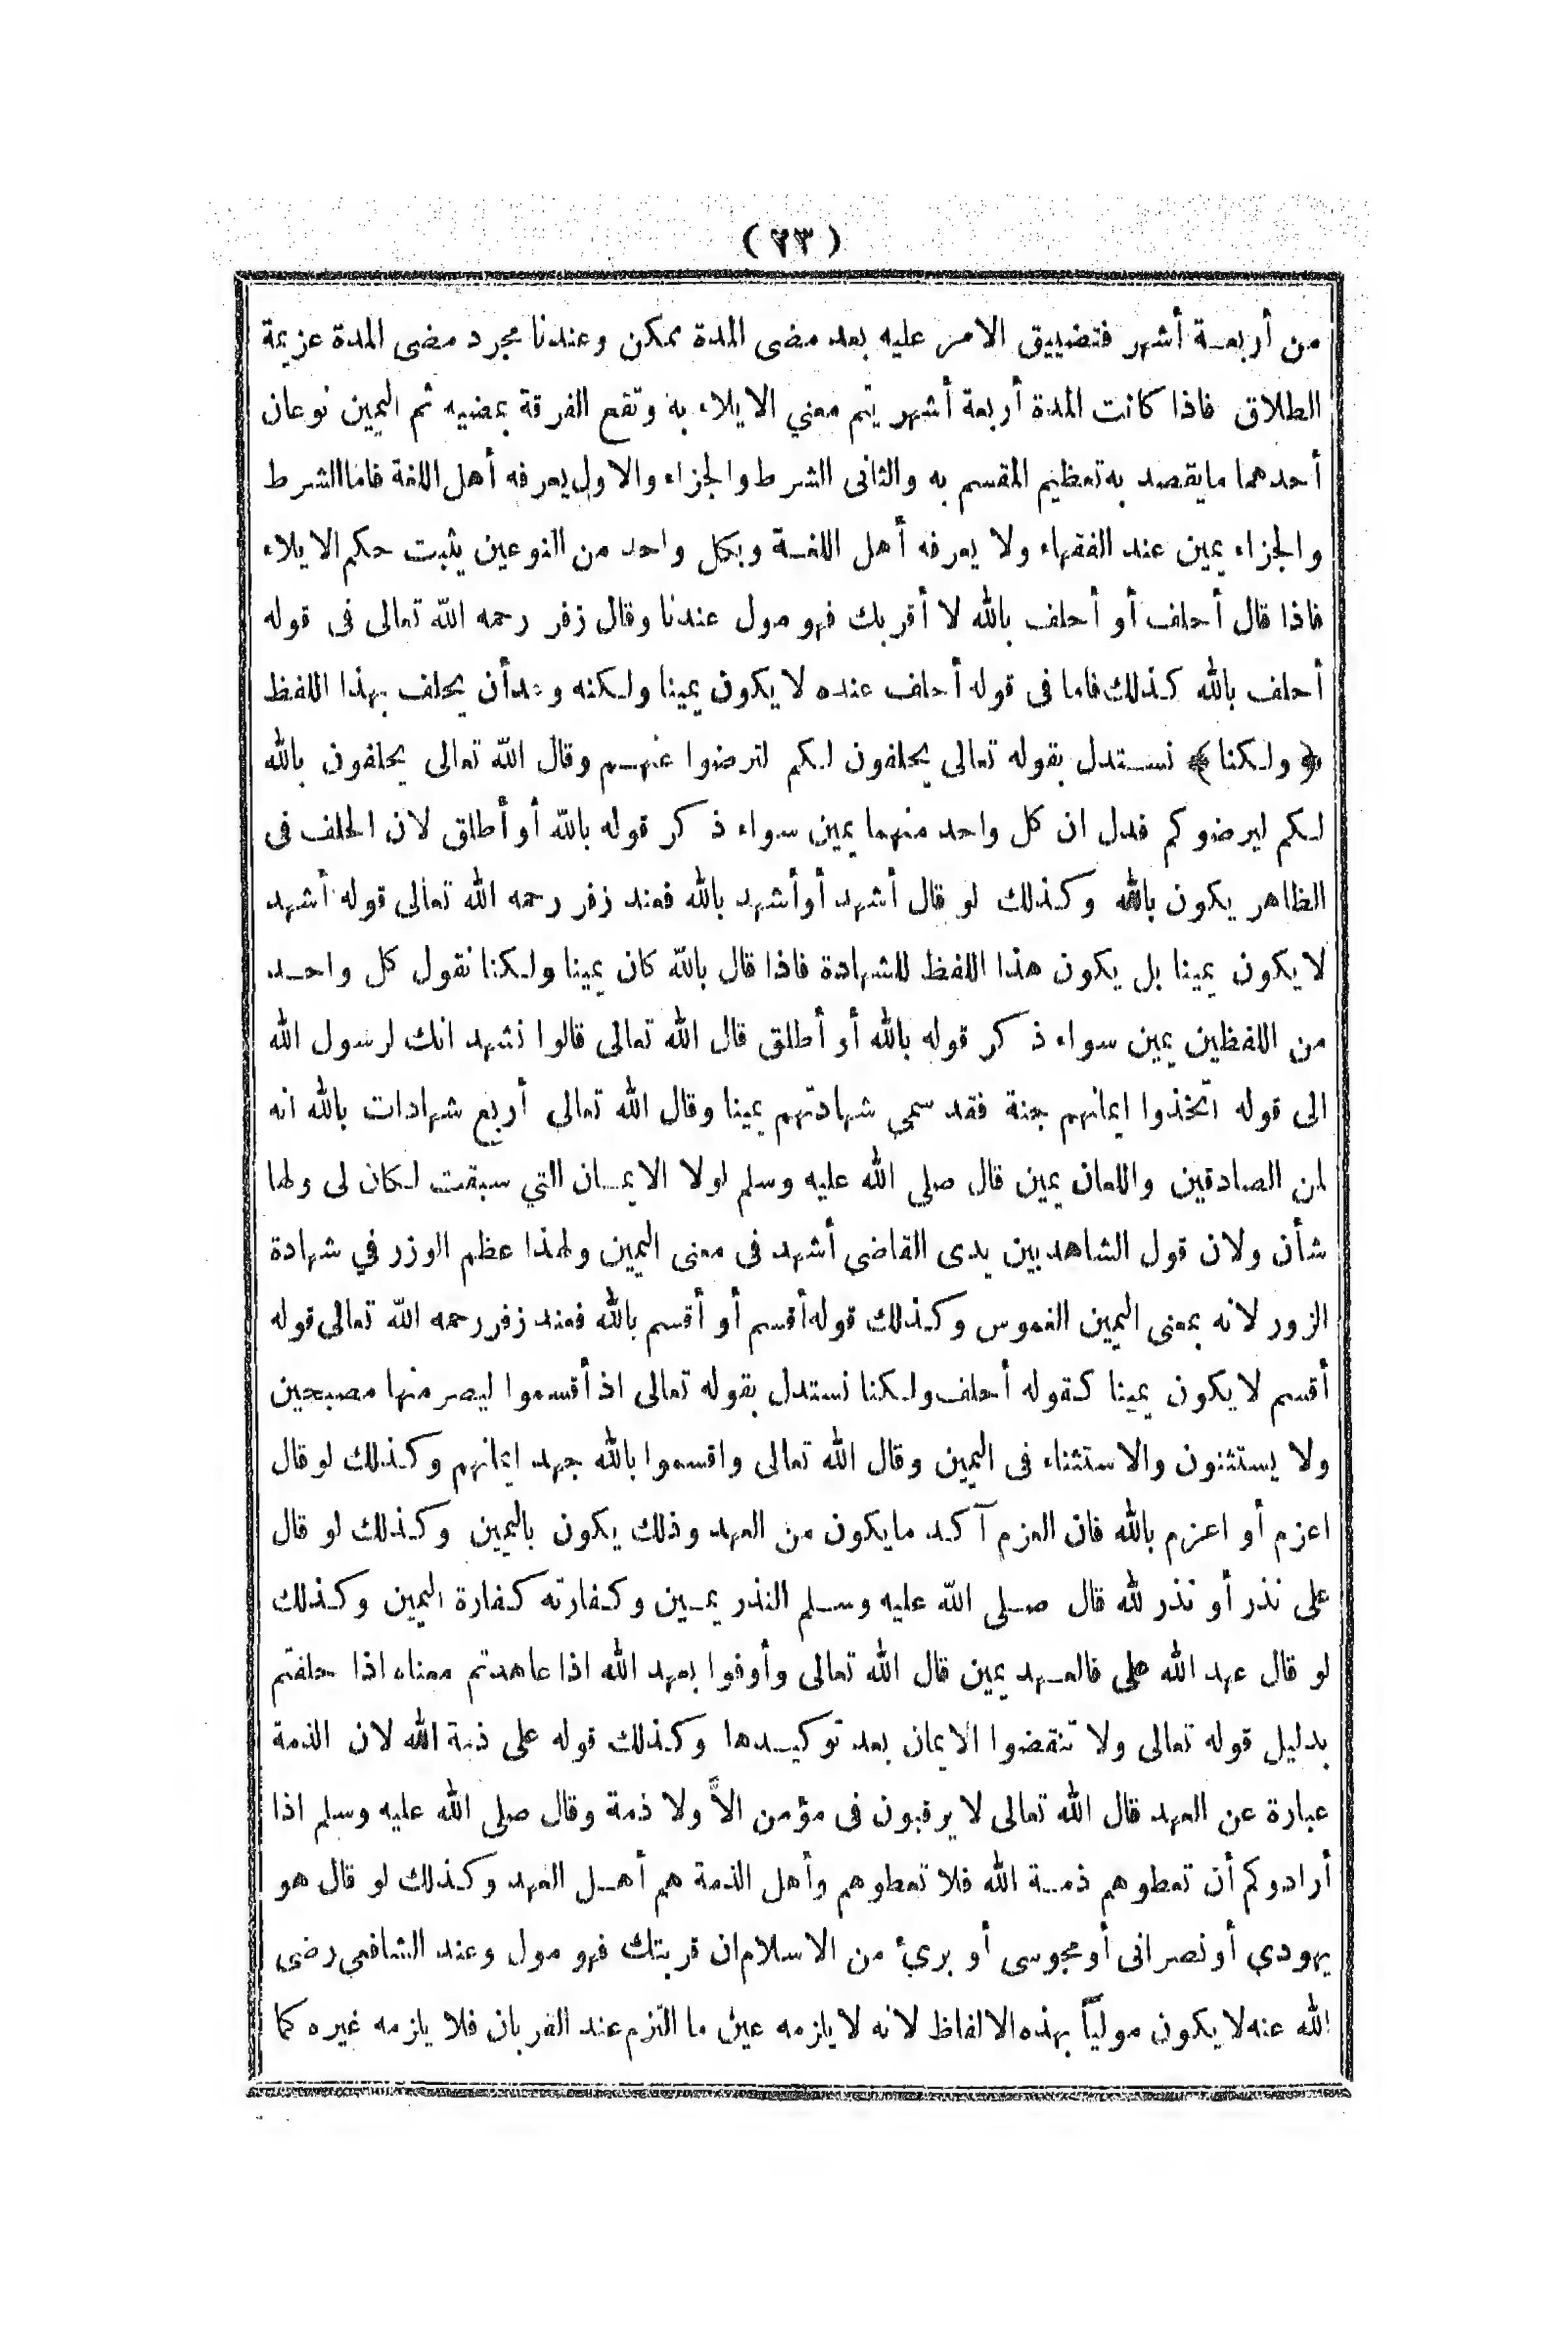 (٢٣)
من أربعـة أشهر فتضييق الامر عليه بعد مضى المدة ممكن وعندنا مجرد مضى المدة عزيمة
الطلاق فاذا كانت المدة أربعة أشهر يتم معني الايلاء به وتقع الفرقة بمضيه ثم اليمين نوعان
أحدهما مايقصد به تعظيم المقسم به والثانى الشرط والجزاء والاول يعرفه أهل اللغة فاما الشرط
والجزاء يمين عند الفقهاء ولا يعرفه أهل اللغـة وبكل واحد من النوعين يثبت حكم الايلاء
فاذا قال أحلف أو أحلف بالله لا أقربك فهو مول عندنا وقال زفر رحمه الله تعالى فى قوله
أحلف بالله كذلك فاما فى قوله أحلف عنده لا يكون يمينا ولكنه وعد أن يحلف بهذا اللفظ
﴿ ولكنا ﴾ نسـتدل بقوله تعالى يحلفون لكم لترضوا عنهـم وقال الله تعالى يحلفون بالله
لكم ليرضوكم فدل ان كل واحد منهما يمين سواء ذكر قوله بالله أو أطلق لان الحلف فى
الظاهر يكون بالله وكذلك لو قال أشهد أوأشهد بالله فعند زفر رحمه الله تعالى قوله أشهد
لايكون يمينا بل يكون هذا اللفظ للشهادة فاذا قال بالله كان يمينا ولكنا نقول كل واحـد
من اللفظين يمين سواء ذكر قوله بالله أو أطلق قال الله تعالى قالوا نشهد انك لرسول الله
الى قوله اتخذوا ايمانهم جنة فقد سمي شهادتهم يمينا وقال الله تعالى أربع شهادات بالله انه
لمن الصادقين واللعان يمين قال صلي الله عليه وسلم لولا الايمـان التي سبقت لكان لى ولها
شأن ولان قول الشاهد بين يدى القاضي أشهد فى معنى اليمين ولهذا عظم الوزر في شهادة
الزور لانه بمعنى اليمين الغموس وكذلك قوله أقسم أو أقسم بالله فعند زفر رحمه الله تعالى قوله
أقسم لايكون يمينا كقوله أحلف ولكنا نستدل بقوله تعالى اذ أقسموا ليصرمنها مصبحين
ولا يستثنون والاستثناء فى اليمين وقال الله تعالى واقسموا بالله جهد ايمانهم وكذلك لو قال
اعزم أو اعزم بالله فان العزم آكد مايكون من العهد وذلك يكون باليمين وكذلك لو قال
على نذر أو نذر لله قال صـلى الله عليه وسـلم النذر يمـين وكفارته كفارة اليمين وكذلك
لو قال عهد الله على فالعـهد يمين قال الله تعالى وأوفوا بعهد الله اذا عاهدتم معناه اذا حلفتم
بدليل قوله تعالى ولا تنقضوا الايمان بعد توكيـدها وكذلك قوله على ذمة الله لان الذمة
عبارة عن العهد قال الله تعالى لا يرقبون فى مؤمن الاًّ ولا ذمة وقال صلى الله عليه وسلم اذا
أرادوكم أن تعطوهم ذمـة الله فلا تعطوهم وأهل الذمة هم أهـل العهد وكذلك لو قال هو
يهودي أو نصرانى أو مجوسى أو برئ من الاسلام ان قربتك فهو مول وعند الشافعى رضى
الله عنه لا يكون موليًا بهذه الالفاظ لانه لا يلزمه عين ما التزم عند القربان فلا يلزمه غيره كما